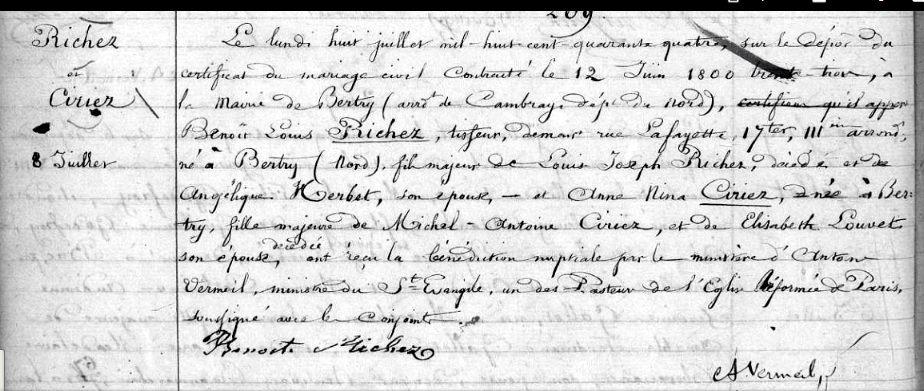 209.
Richez
et
Ciriez
8 Juillet
Le lundi huit juillet mil-huit-cent-quarante quatre, sur le dépot du
certificat du mariage civil contracté le 12 Juin 1800 trente trois, à
la Mairie de Bertry (arrdt de Cambray, dépt du Nord), certifions qu'il appert
Benoît Louis Richez, tisseur, demeurt rue Lafayette, 17ter, IIIme arrondt,
né à Bertry (Nord), fils majeur de Louis Joseph Richez, décédé et de
Angélique Herbet, son épouse, — et Anne Nina Ciriez, née à Ber-
try, fille majeure de Michel-Antoine Ciriez, et de Elisabeth Louvet
son épouse, décédée ont reçu la bénédiction nuptiale par le ministère d'Antoine
Vermeil, ministre du St Evangile, un des Pasteurs de l'Eglise Réformée de Paris,
soussigné avec les conjoints.
Benoit Richez
A Vermeil,